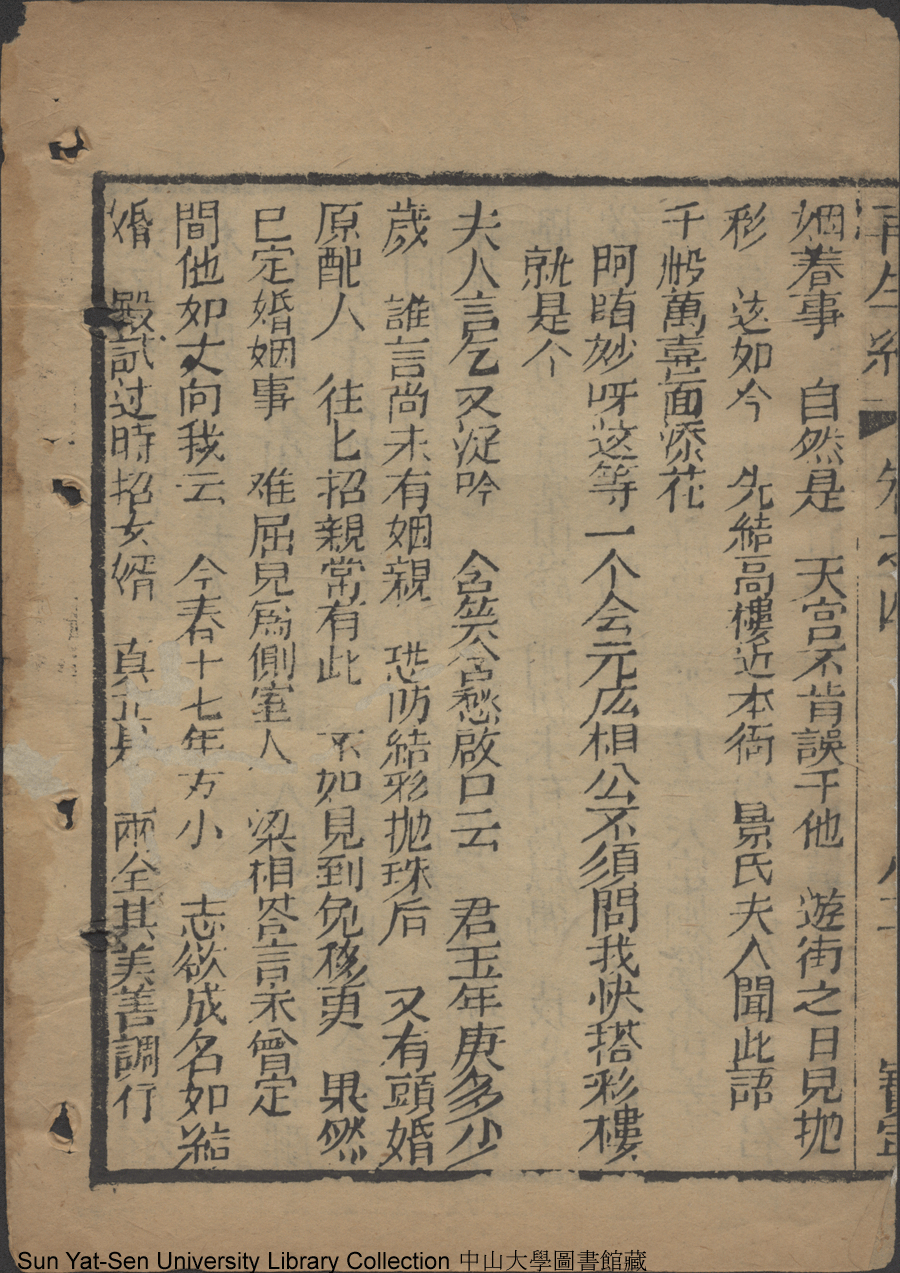 再生緣 卷之四
姻眷事 自然是 天宫不肯誤千他 遊街之日見抛
彩 这如今 先結高樓近本衙 景氏夫人聞此語
千般萬喜面添花
阿唷妙呀这等一个会元広相公不須問我快搭彩樓
就是个
夫人言乞又沉吟 含笑含愁啟口云 君玉年庚多少
歲 誰言尚未有姻親 恐防結彩抛珠后 又有頭婚
原配人 往匕招親常有此 不如見到免移更 果然
已定婚姻事 难屈見爲側室人 梁相答言未曾定
間他如丈向我云 今春十七年方小 志欲成名如結
婚 殿試过時招女婿 真 是 兩全其美善調行
Sun Yat-Sen University Library Collection 中山大學圖書館藏